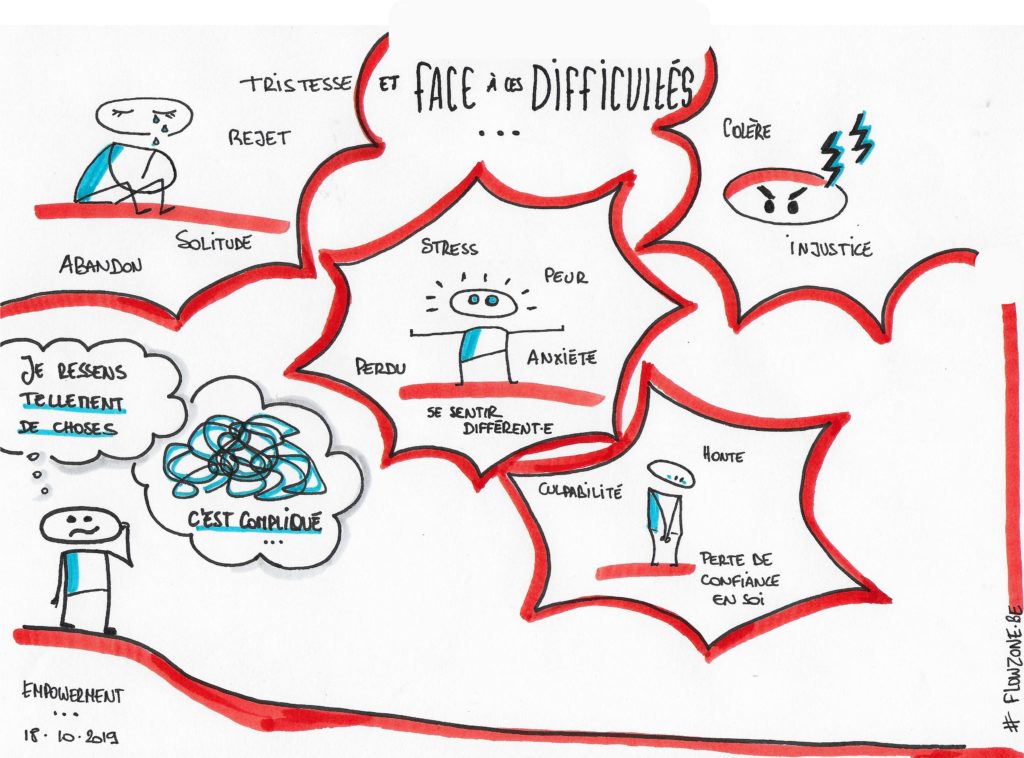 ET FACE À CES DIFFICULTÉS
...
TRISTESSE
REJET
SOLITUDE
ABANDON
COLÈRE
INJUSTICE
STRESS
PEUR
PERDU
ANXIÉTÉ
SE SENTIR
DIFFÉRENT·E
JE RESSENS
TELLEMENT
DE CHOSES
C'EST COMPLIQUÉ
...
HONTE
CULPABILITÉ
PERTE DE
CONFIANCE
EN SOI
EMPOWERMENT
...
18·10·2019
# FLOWZONE.BE